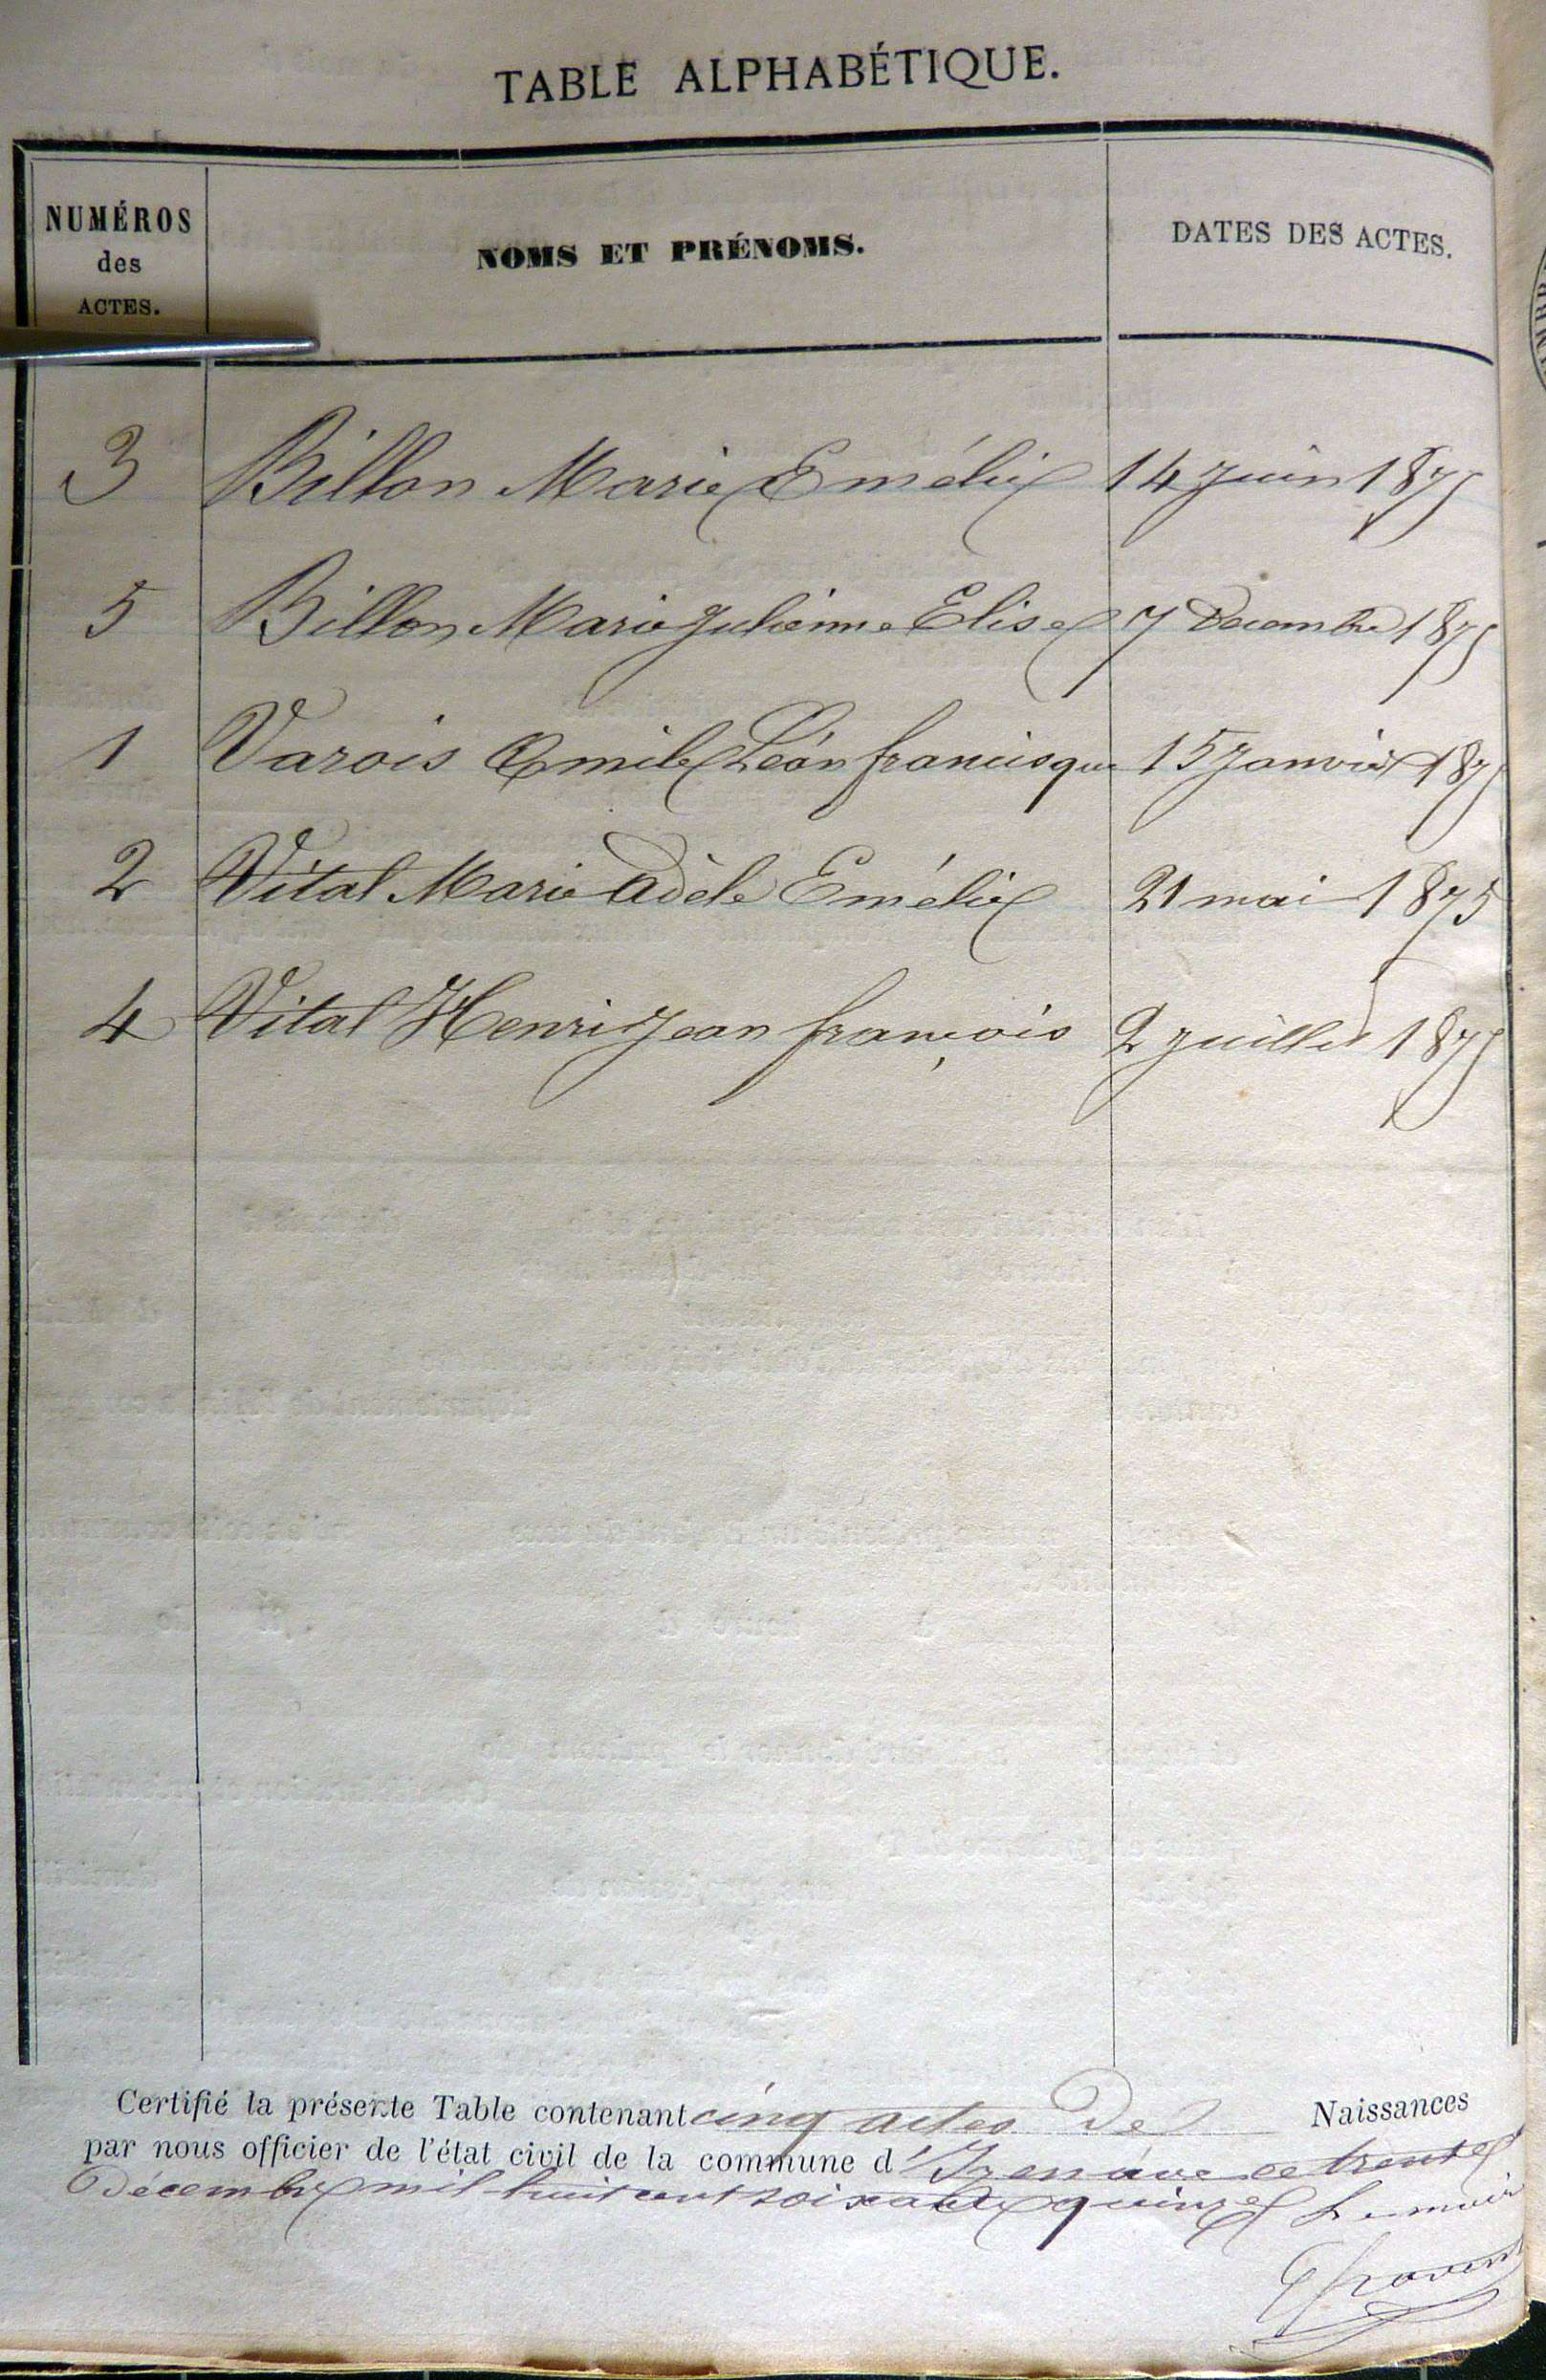 TABLE ALPHABÉTIQUE.
NUMÉROS
des
ACTES.
NOMS ET PRÉNOMS.
DATES DES ACTES.
3 Billon Marie Emélie 14 juin 1875
5 Billon Marie Julienne Elise 7 Décembre 1875
1 Varois Emile Léon francisque 15 Janvier 1875
2 Vital Marie Adèle Emélie 21 mai 1875
4 Vital Henri Jean françois 2 Juillet 1875
Certifié la présente Table contenant cinq actes De Naissances
par nous officier de l'état civil de la commune d'Izenave ce trente
Décembre mil huit cent soixante quinze Le maire